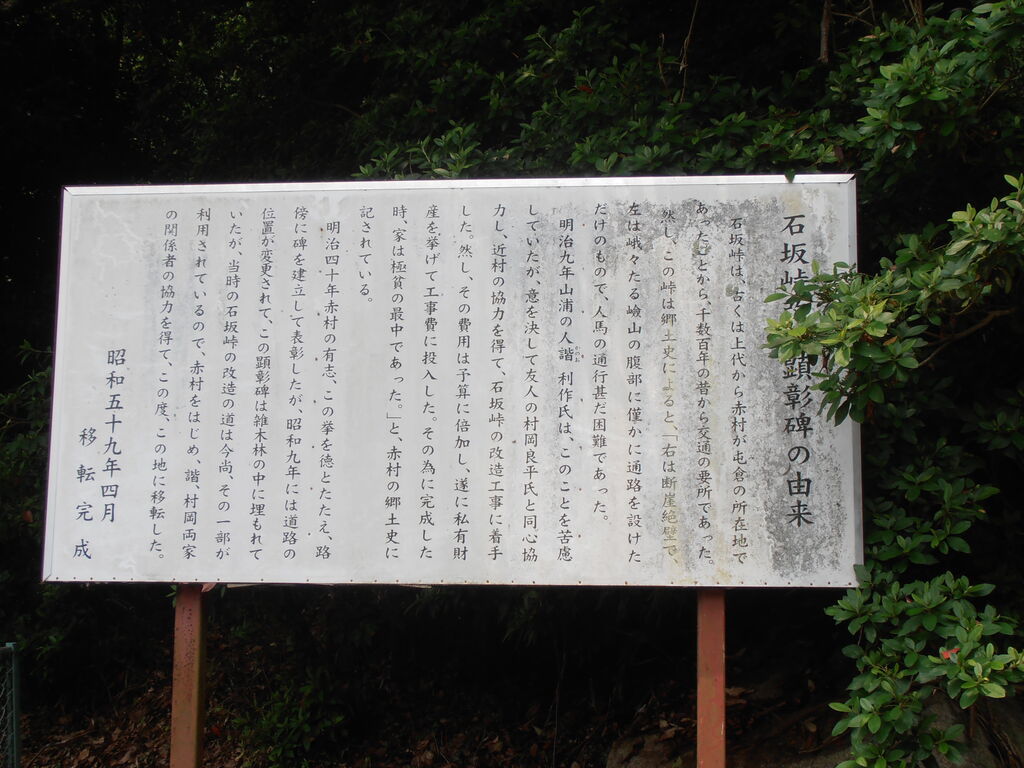 石坂峠 顕彰碑の由来
石坂峠は、古くは上代から赤村が屯倉の所在地で
あったことから、千数百年の昔から交通の要所であった。
然し、この峠は郷土史によると、「右は断崖絶壁で、
左は峨々たる嶮山の腹部に僅かに通路を設けた
だけのもので、人馬の通行甚だ困難であった。
明治九年山浦の人諧 利作氏は、このことを苦慮
していたが、意を決して友人の村岡良平氏と同心協
力し、近村の協力を得て、石坂峠の改造工事に着手
した。然し、その費用は予算に倍加し、遂に私有財
産を挙げて工事費に投入した。その為に完成した
時、家は極貧の最中であった。」と、赤村の郷土史に
記されている。
明治四十年赤村の有志、この挙を徳とたたえ、路
傍に碑を建立して表彰したが、昭和九年には道路の
位置が変更されて、この顕彰碑は雑木林の中に埋もれて
いたが、当時の石坂峠の改造の道は今尚、その一部が
利用されているので、赤村をはじめ、諧、村岡両家
の関係者の協力を得て、この度、この地に移転した。
昭和五十九年四月
移転完成